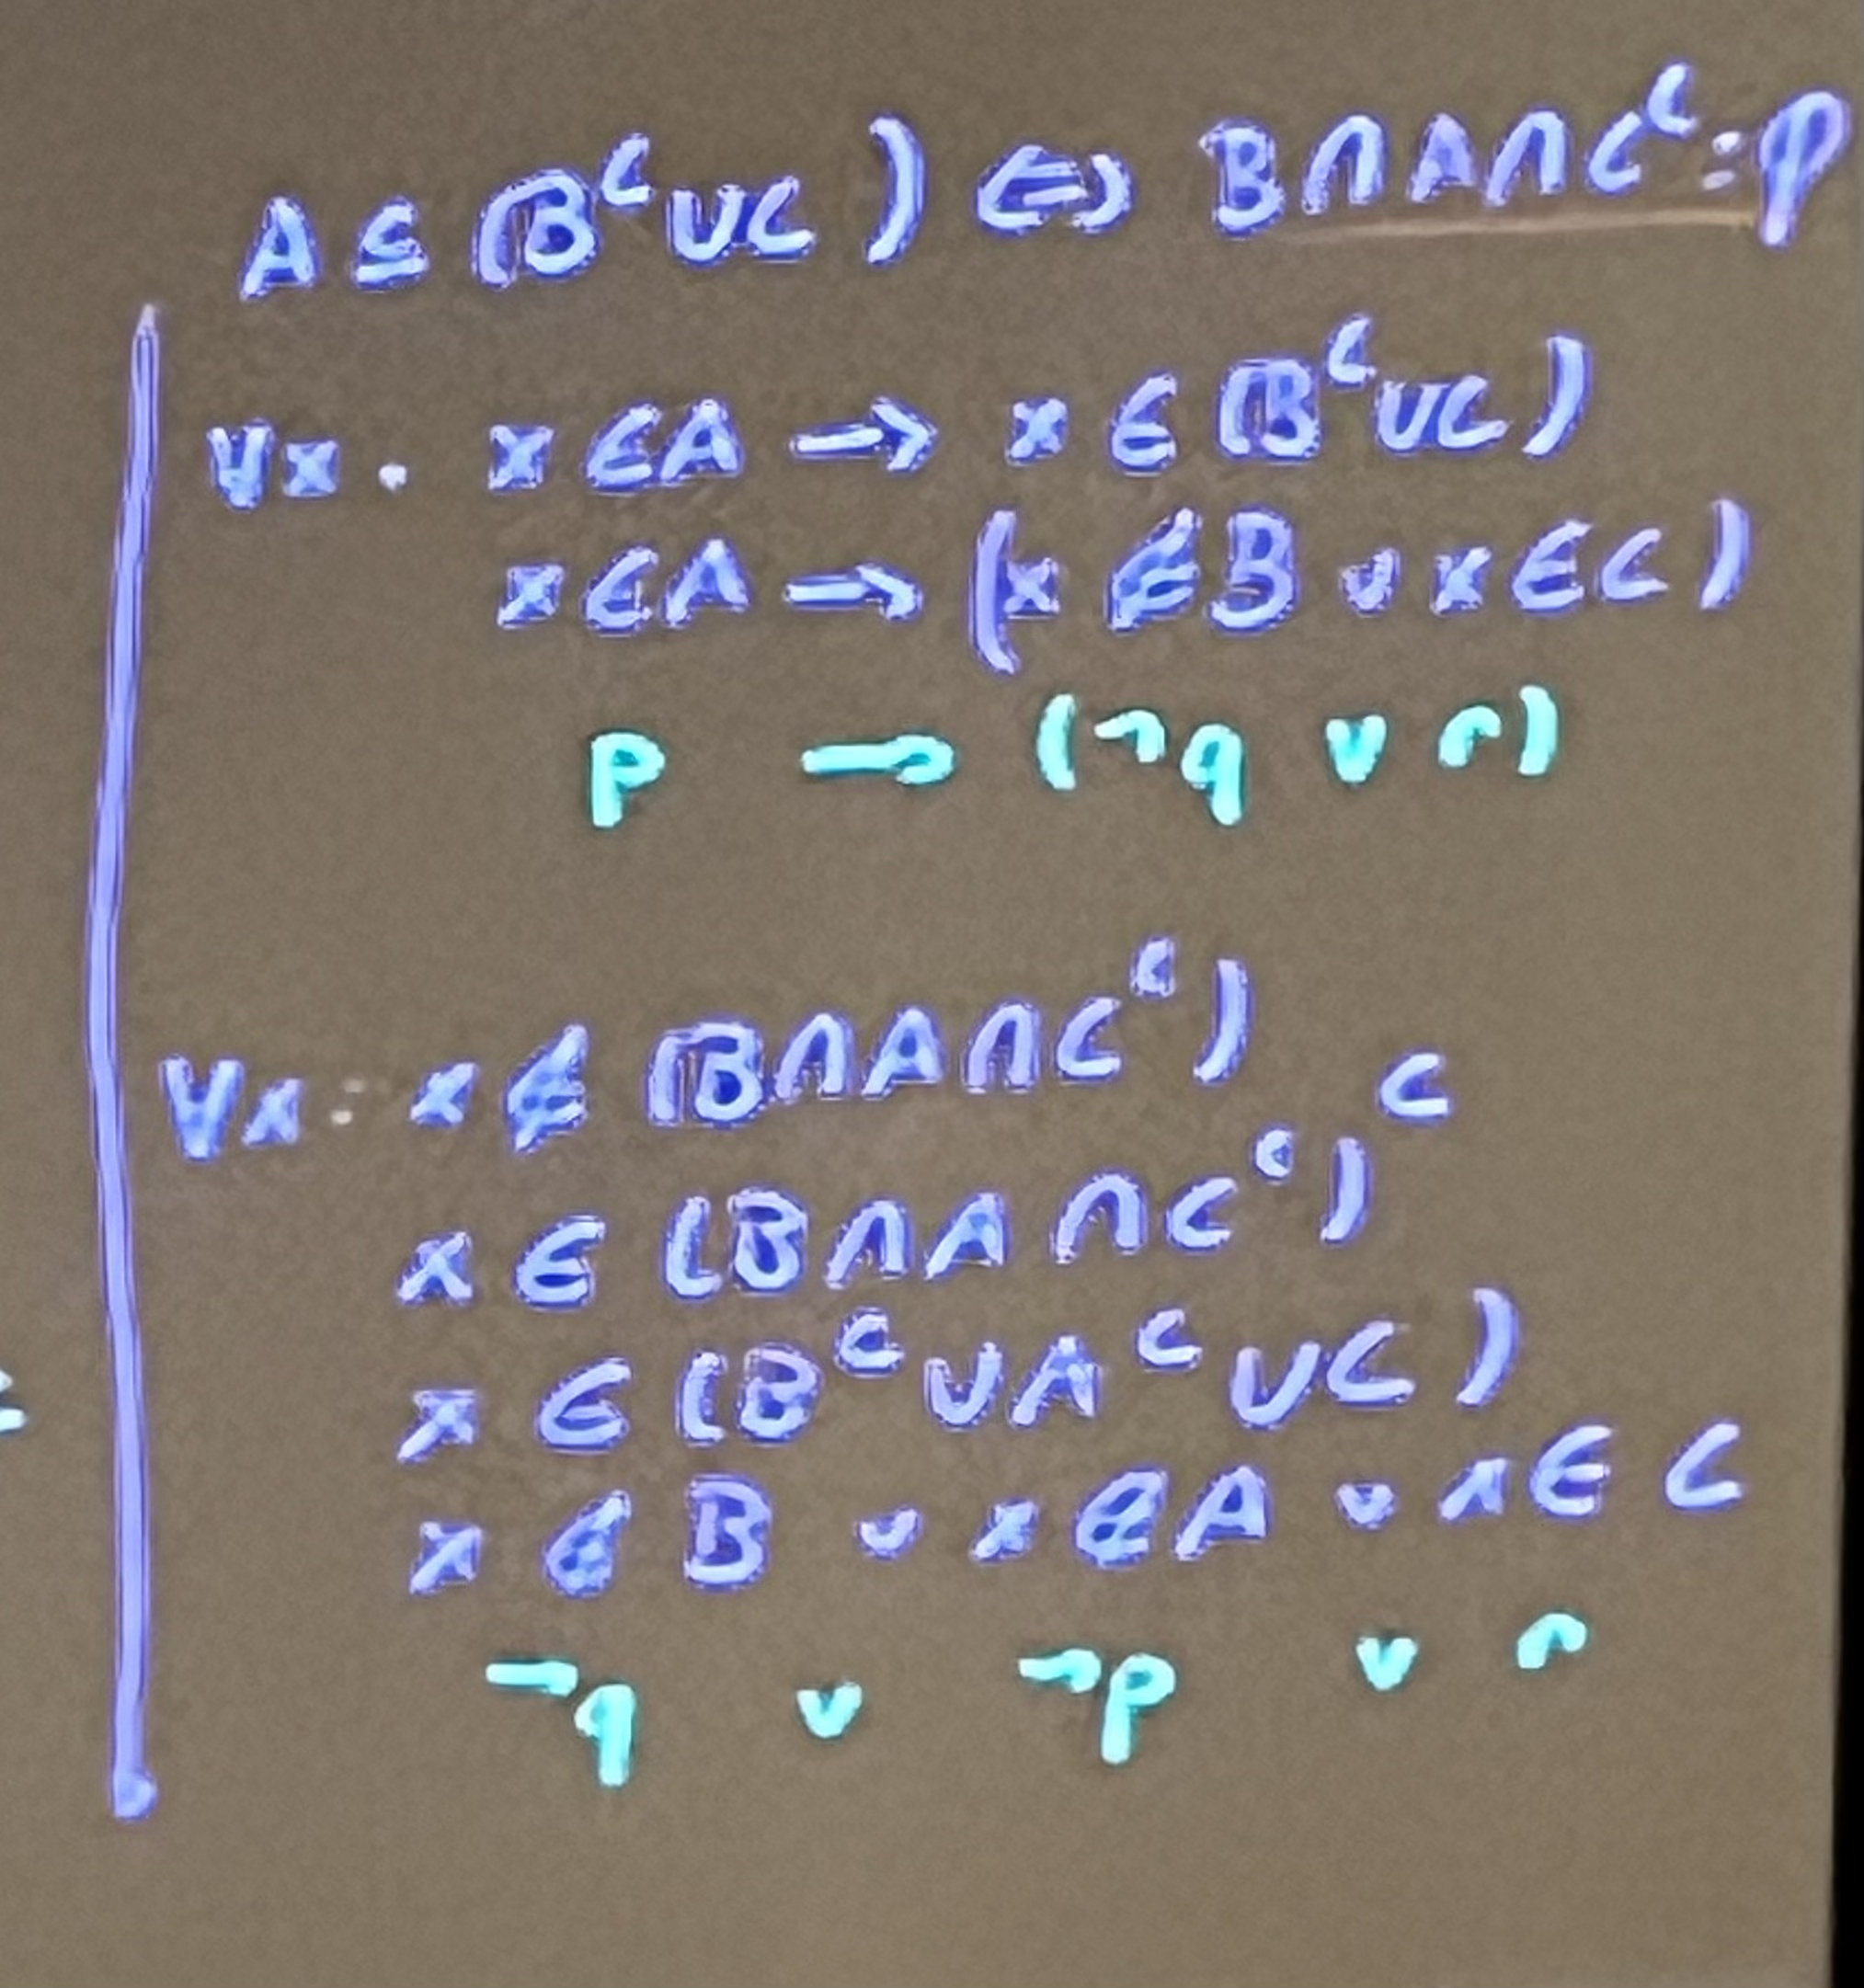 A ⊆ (B^c ∪ C) ⇔ B ∩ A ∩ C^c = φ
∀x. x ∈ A → x ∈ (B^c ∪ C)
x ∈ A → (x ∉ B ∨ x ∈ C)
p → (¬q ∨ r)
∀x: x ∉ (B ∩ A ∩ C^c)
x ∈ (B ∩ A ∩ C^c)^c
x ∈ (B^c ∪ A^c ∪ C)
x ∉ B ∨ x ∉ A ∨ x ∈ C
¬q ∨ ¬p ∨ r